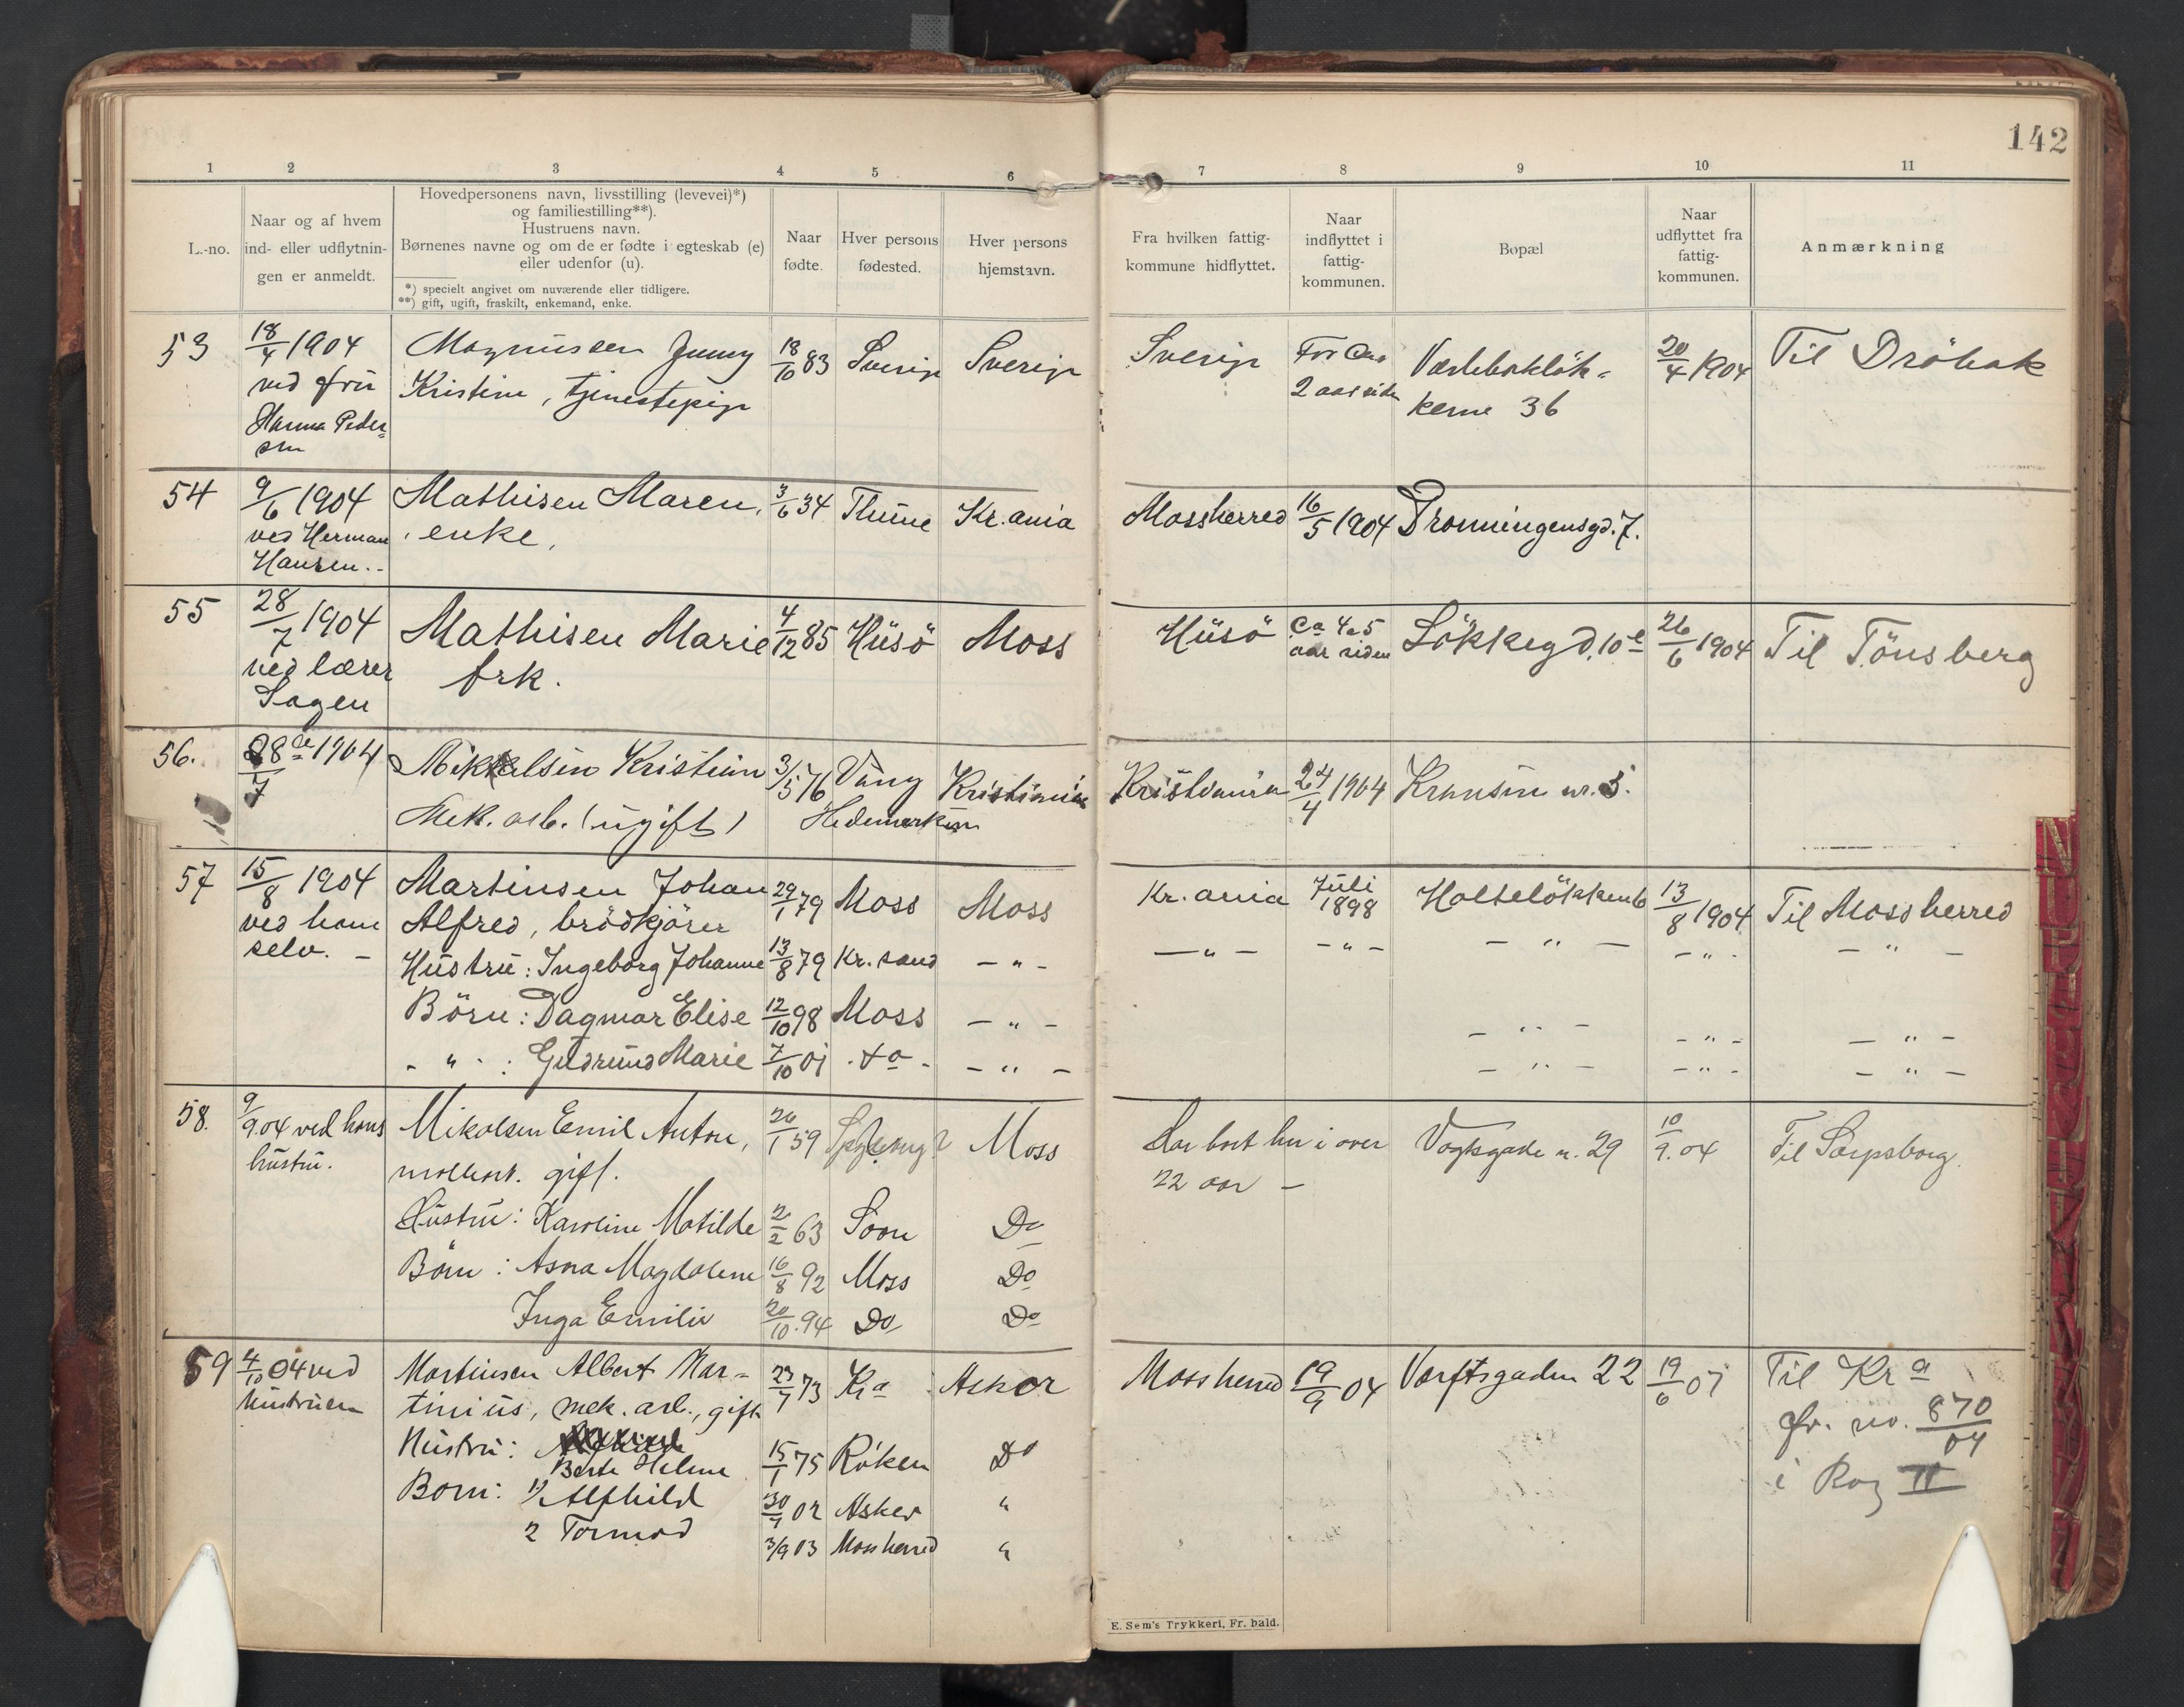 142
1 2 3 4 5 6 7 8 9 10 11
L.-no.
Naar og af hvem
ind- eller udflytnin-
gen er anmeldt.
Hovedpersonens navn, livsstilling (levevei)*)
og familiestilling**).
Hustruens navn.
Børnenes navne og om de er fødte i egteskab (e)
eller udenfor (u).
*) specielt angivet om nuværende eller tidligere.
**) gift, ugift, fraskilt, enkemand, enke.
Naar
fødte.
Hver persons
fødested.
Hver persons
hjemstavn.
Fra hvilken fattig-
kommune hidflyttet.
Naar
indflyttet i
fattig-
kommunen.
Bopæl
Naar
udflyttet fra
fattig-
kommunen.
Anmærkning
53
18/4 1904
ved fru
Hanna Peder=
sen
Magnussen Jenny
Kristine, tjenestepige
18/10 83
Sverige
Sverige
Sverige
For Ca.
2 aar siden
Værlebøkløk-
kerne 36
20/4 1904
Til Dröbak
54
9/6 1904
ved Herman
Hansen..
Mathisen Maren,
enke.
3/6 34
Thune
Kr.ania
Mossherred
16/5 1904
Dronningensgd. 7.
55
28/7 1904
ved lærer
Sagen
Mathisen Marie
frk.
4/12 85
Husö
Moss
Husö
Ca 4 a 5
aar siden
Lökkegd. 10 e
26/6 1904
Til Tönsberg
56.
28de/7 1904
Mikkelsen Kristian
Mek. arb. (ugift)
3/5 76
Vang
Hedemarken
Kristiania
Kristiania
24/4 1904
Kransen nr. 5.
57
15/8 1904
ved ham
selv. -
Martinsen Johan
Alfred, brödkjörer
29/1 79
Moss
Moss
Kr.ania
Juli
1898
Holtelökken 6
13/8 1904
Til Mossherred
Hustru: Ingeborg Johanne
13/8 79
Kr.sand
- " -
- " -
- " -
- " -
- " -
- " -
Börn: Dagmar Elise
12/10 98
Moss
- " -
- " -
- " -
- " -
- " - : Gudrund Marie
7/10 01
do -
- " -
- " -
- " -
- " -
58.
9/9.04 ved hans
hustru.
Mikalsen Emil Anton,
gift.
26/1 59
Moss
Har bort her i over
22 aar -
Vogtsgade n. 29
10/9.04
Til Sarpsborg.
Hustru: Karoline Matilde
2/2 63
Soon
Do
Börn: Asora Magdalene
16/8 92
Moss
Do
Inga Emilie
20/10.94
Do
Do
59
4/10 04 ved
hustruen
Martinsen Albert Mar=
tinius, mek. arb., gift
23/7 73
Kra
Asker
Mossherred
19/9 04
Værftsgaden 22
19/6 07
Til Kra
Hustru:
Berte Helene
15/1 75
Röken
Do
fr. no. 870/04
i Prog II
Børn: 1/ Alfhild
30/7 02
Asker
"
2 Tormod
3/9 03
Mossherred
"
E. Sem's Trykkeri, Fr. hald.